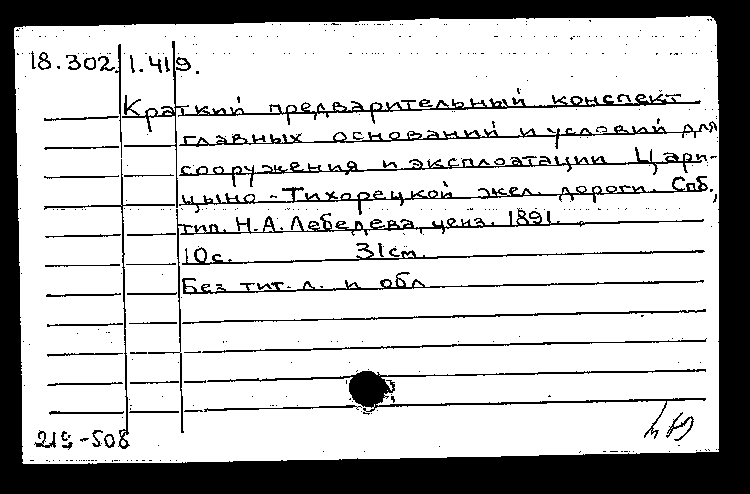 18.302.1.419.
Краткий предварительный конспект
главных оснований и условий для
сооружения и эксплоатации Цари-
цыно-Тихорецкой жел. дороги. Спб.,
тип. Н.А. Лебедева, ценз. 1891.
10с. 31см.
Без тит. л. и обл
219-508